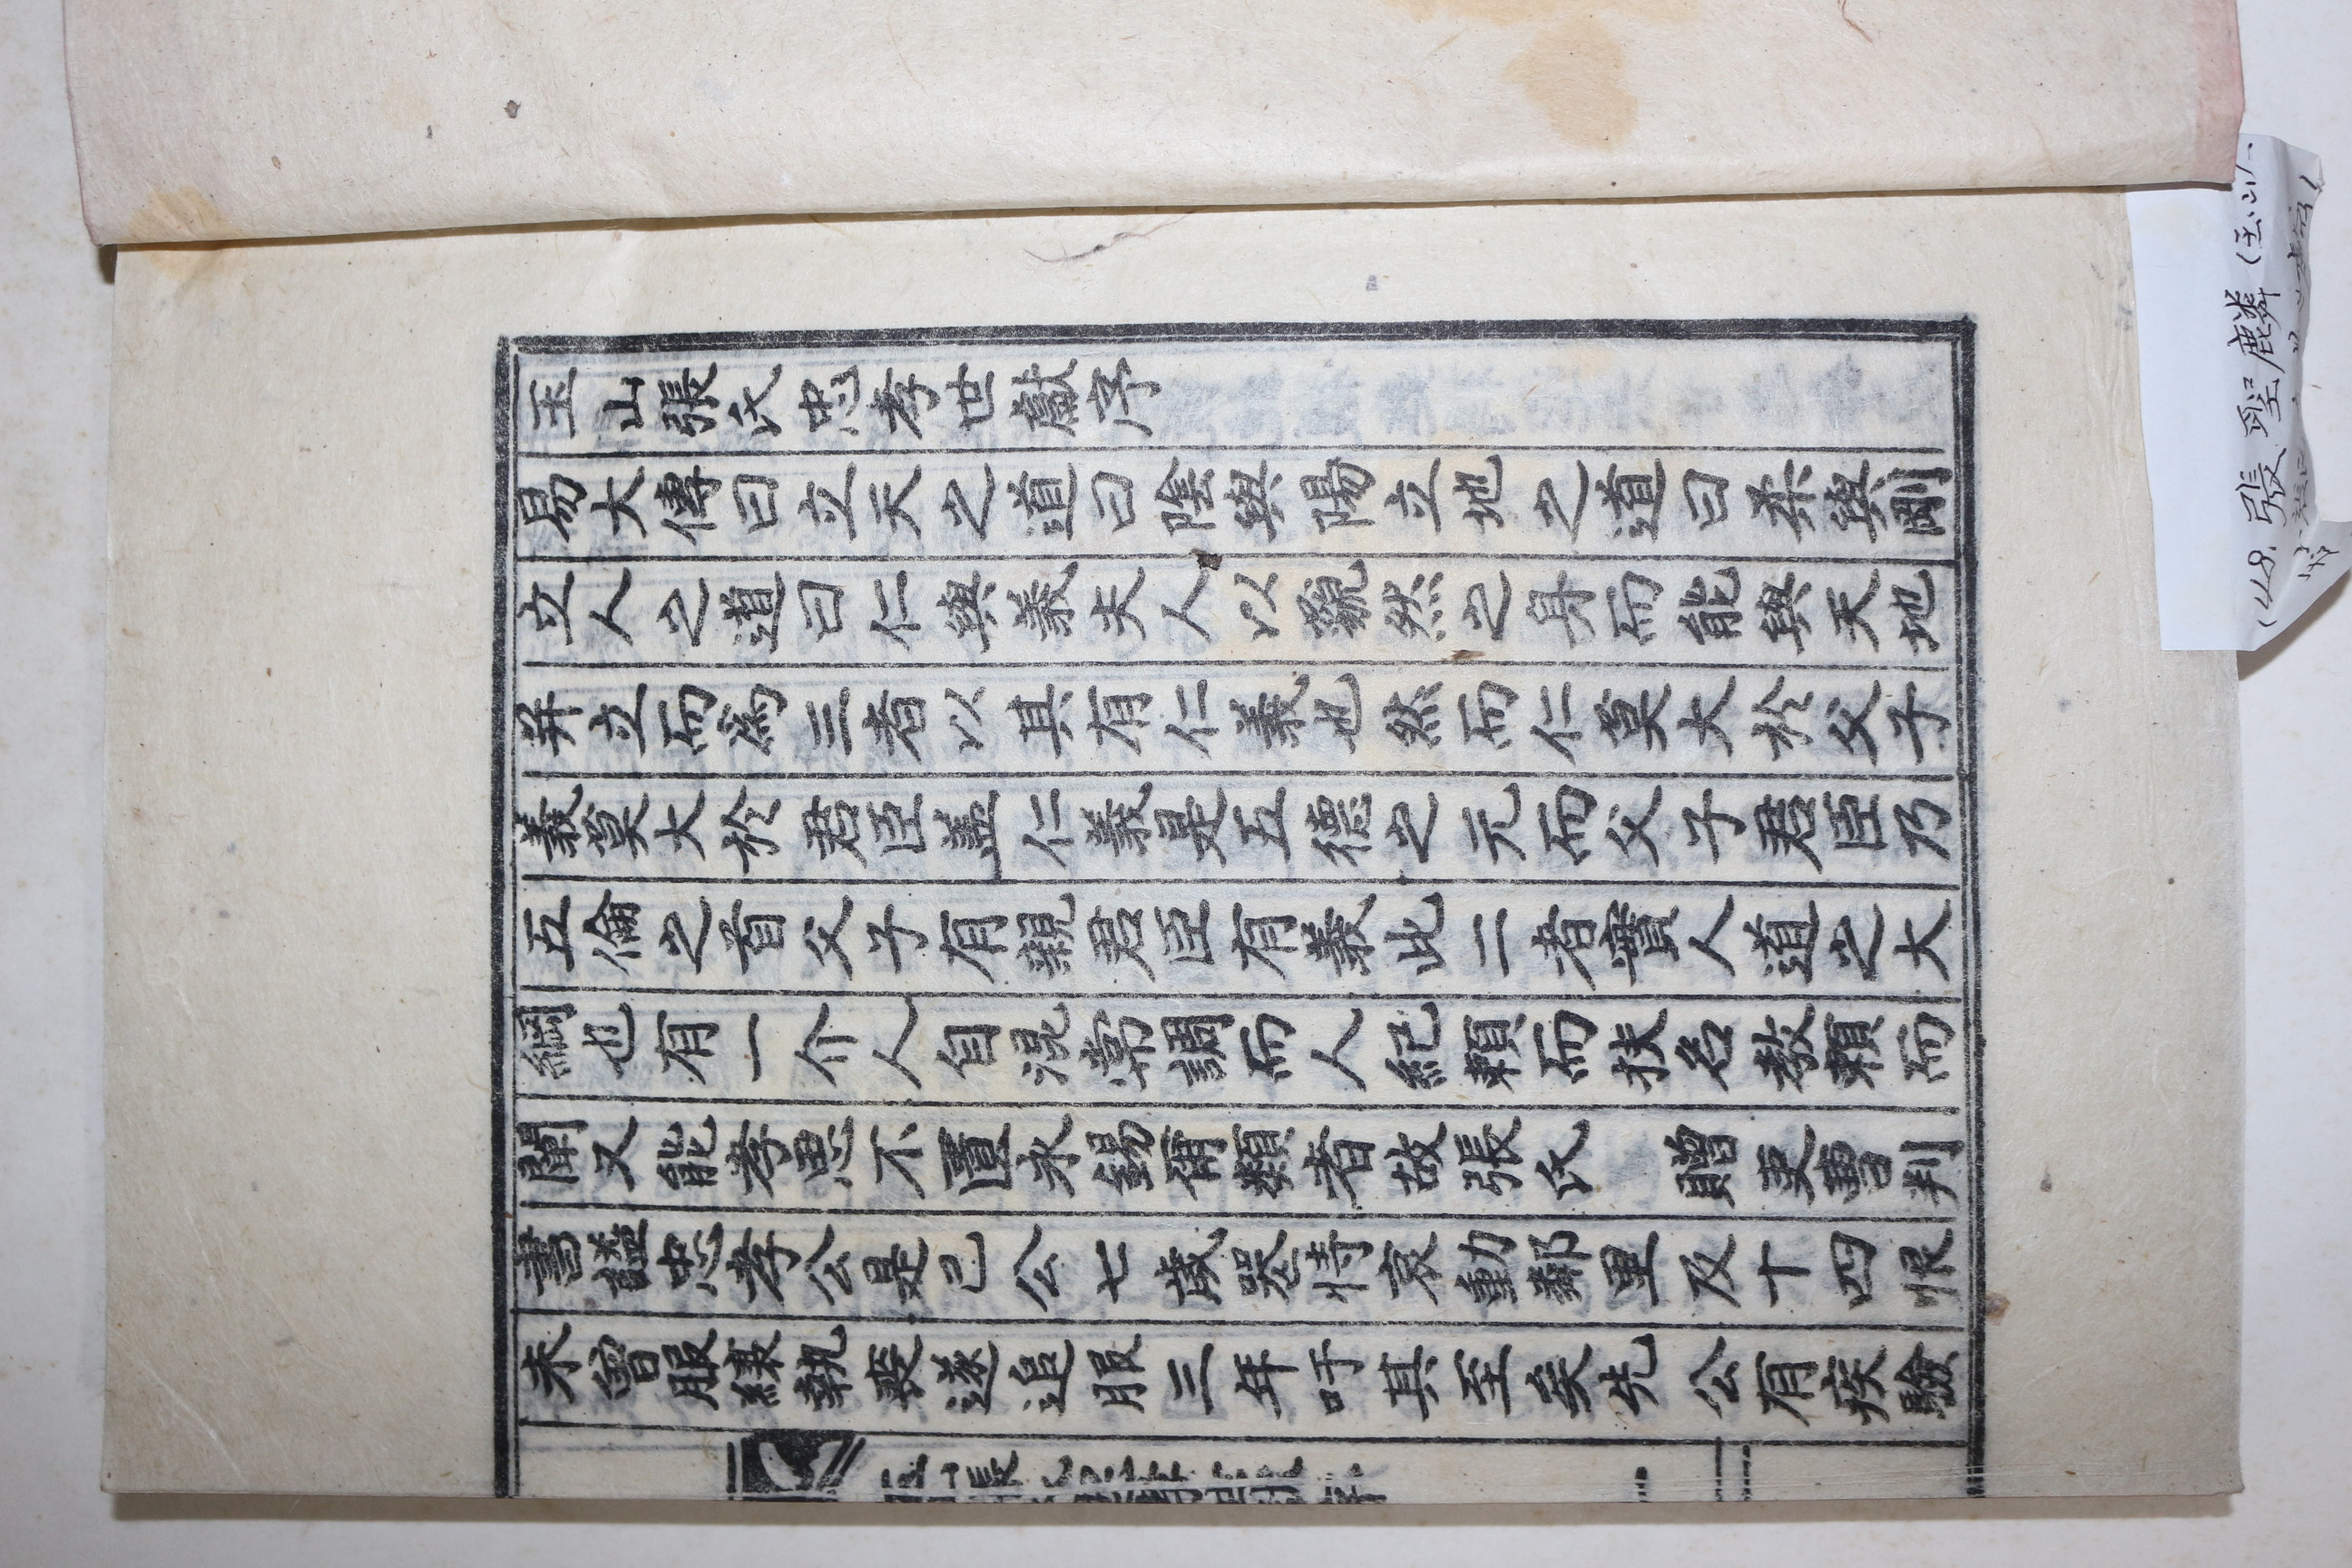 玉山張氏忠孝世獻序
易大傳曰立天之道曰陰與陽立地之道曰柔與剛
立人之道曰仁與義夫人以藐然之身而能與天地
并立而爲三者以其有仁義也然而仁莫大於父子
義莫大於君臣盖仁義是五德之元而父子君臣乃
五倫之首父子有親君臣有義此二者實人道之大
綱也有一介人自混常調而人紀賴而扶名敎賴而
闡又能孝思不匱永錫爾類者故張氏 贈吏曹判
書謚忠孝公是已公七歲哭恃哀動鄰里及十四恨
未曾服縗執喪遂追服三年吁其至矣先公有疾驗
148. 張聖麟